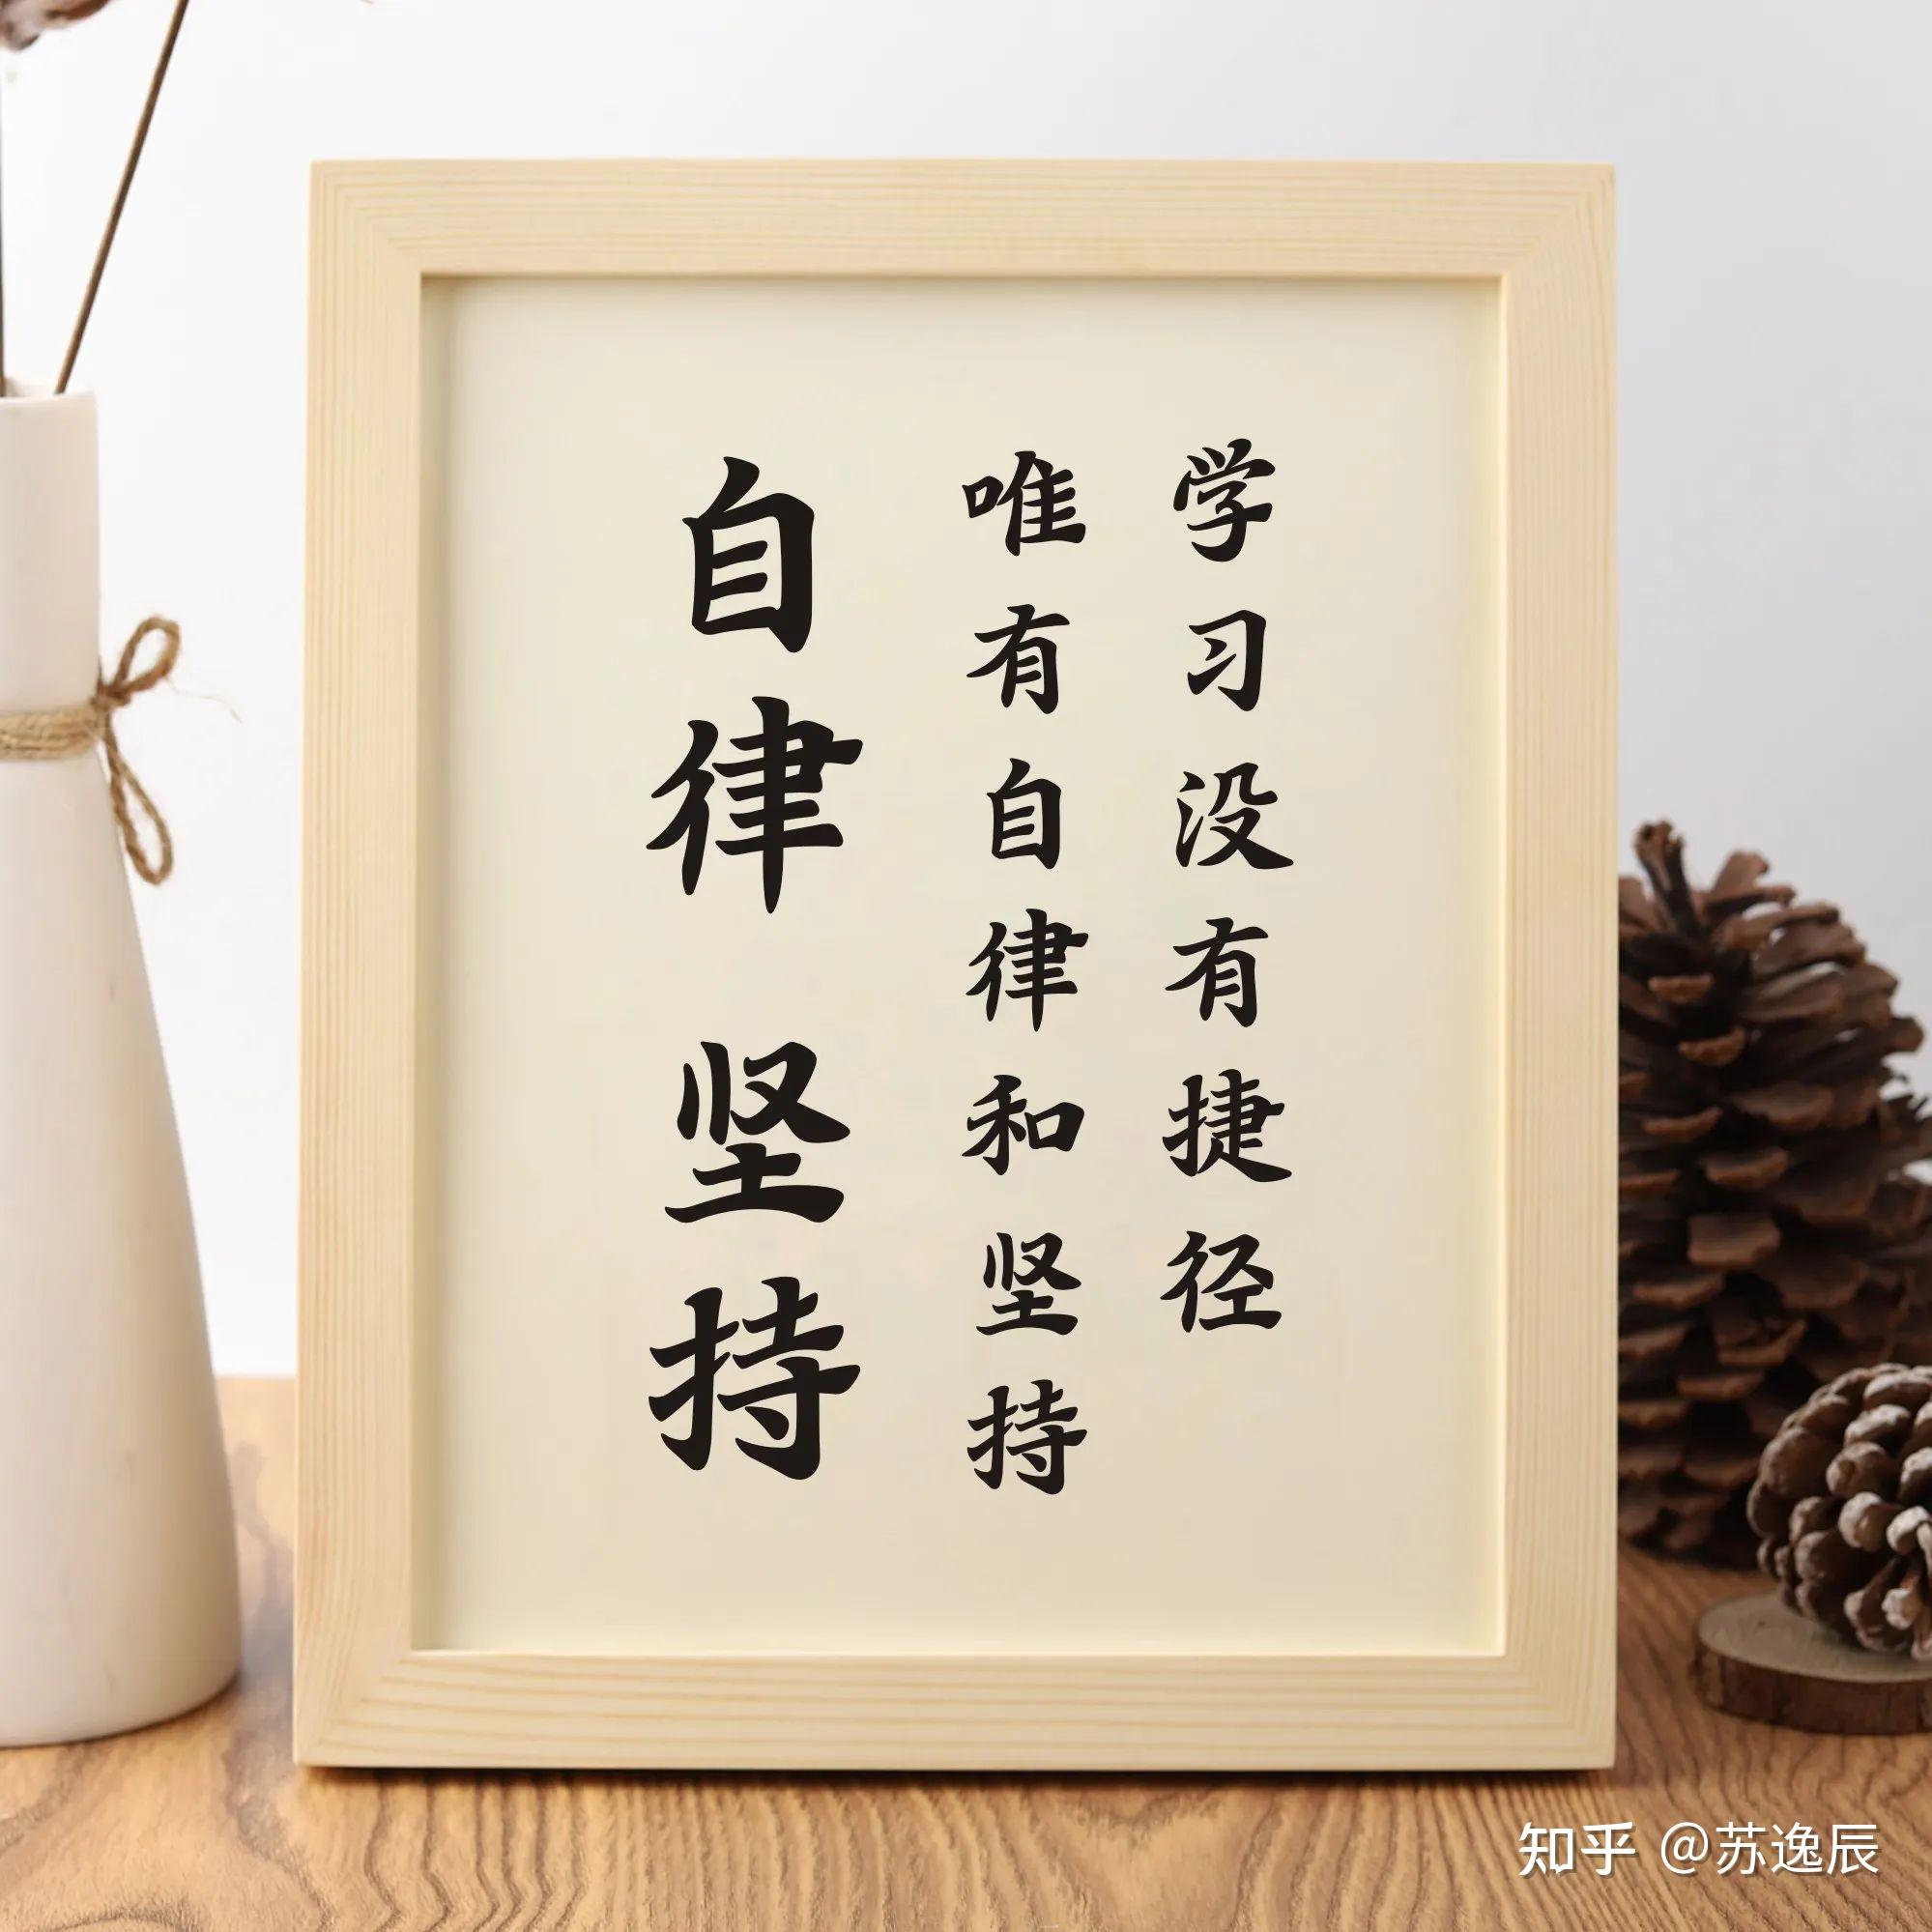 学习没有捷径
唯有自律和坚持
自律 坚持
知乎 @苏逸辰